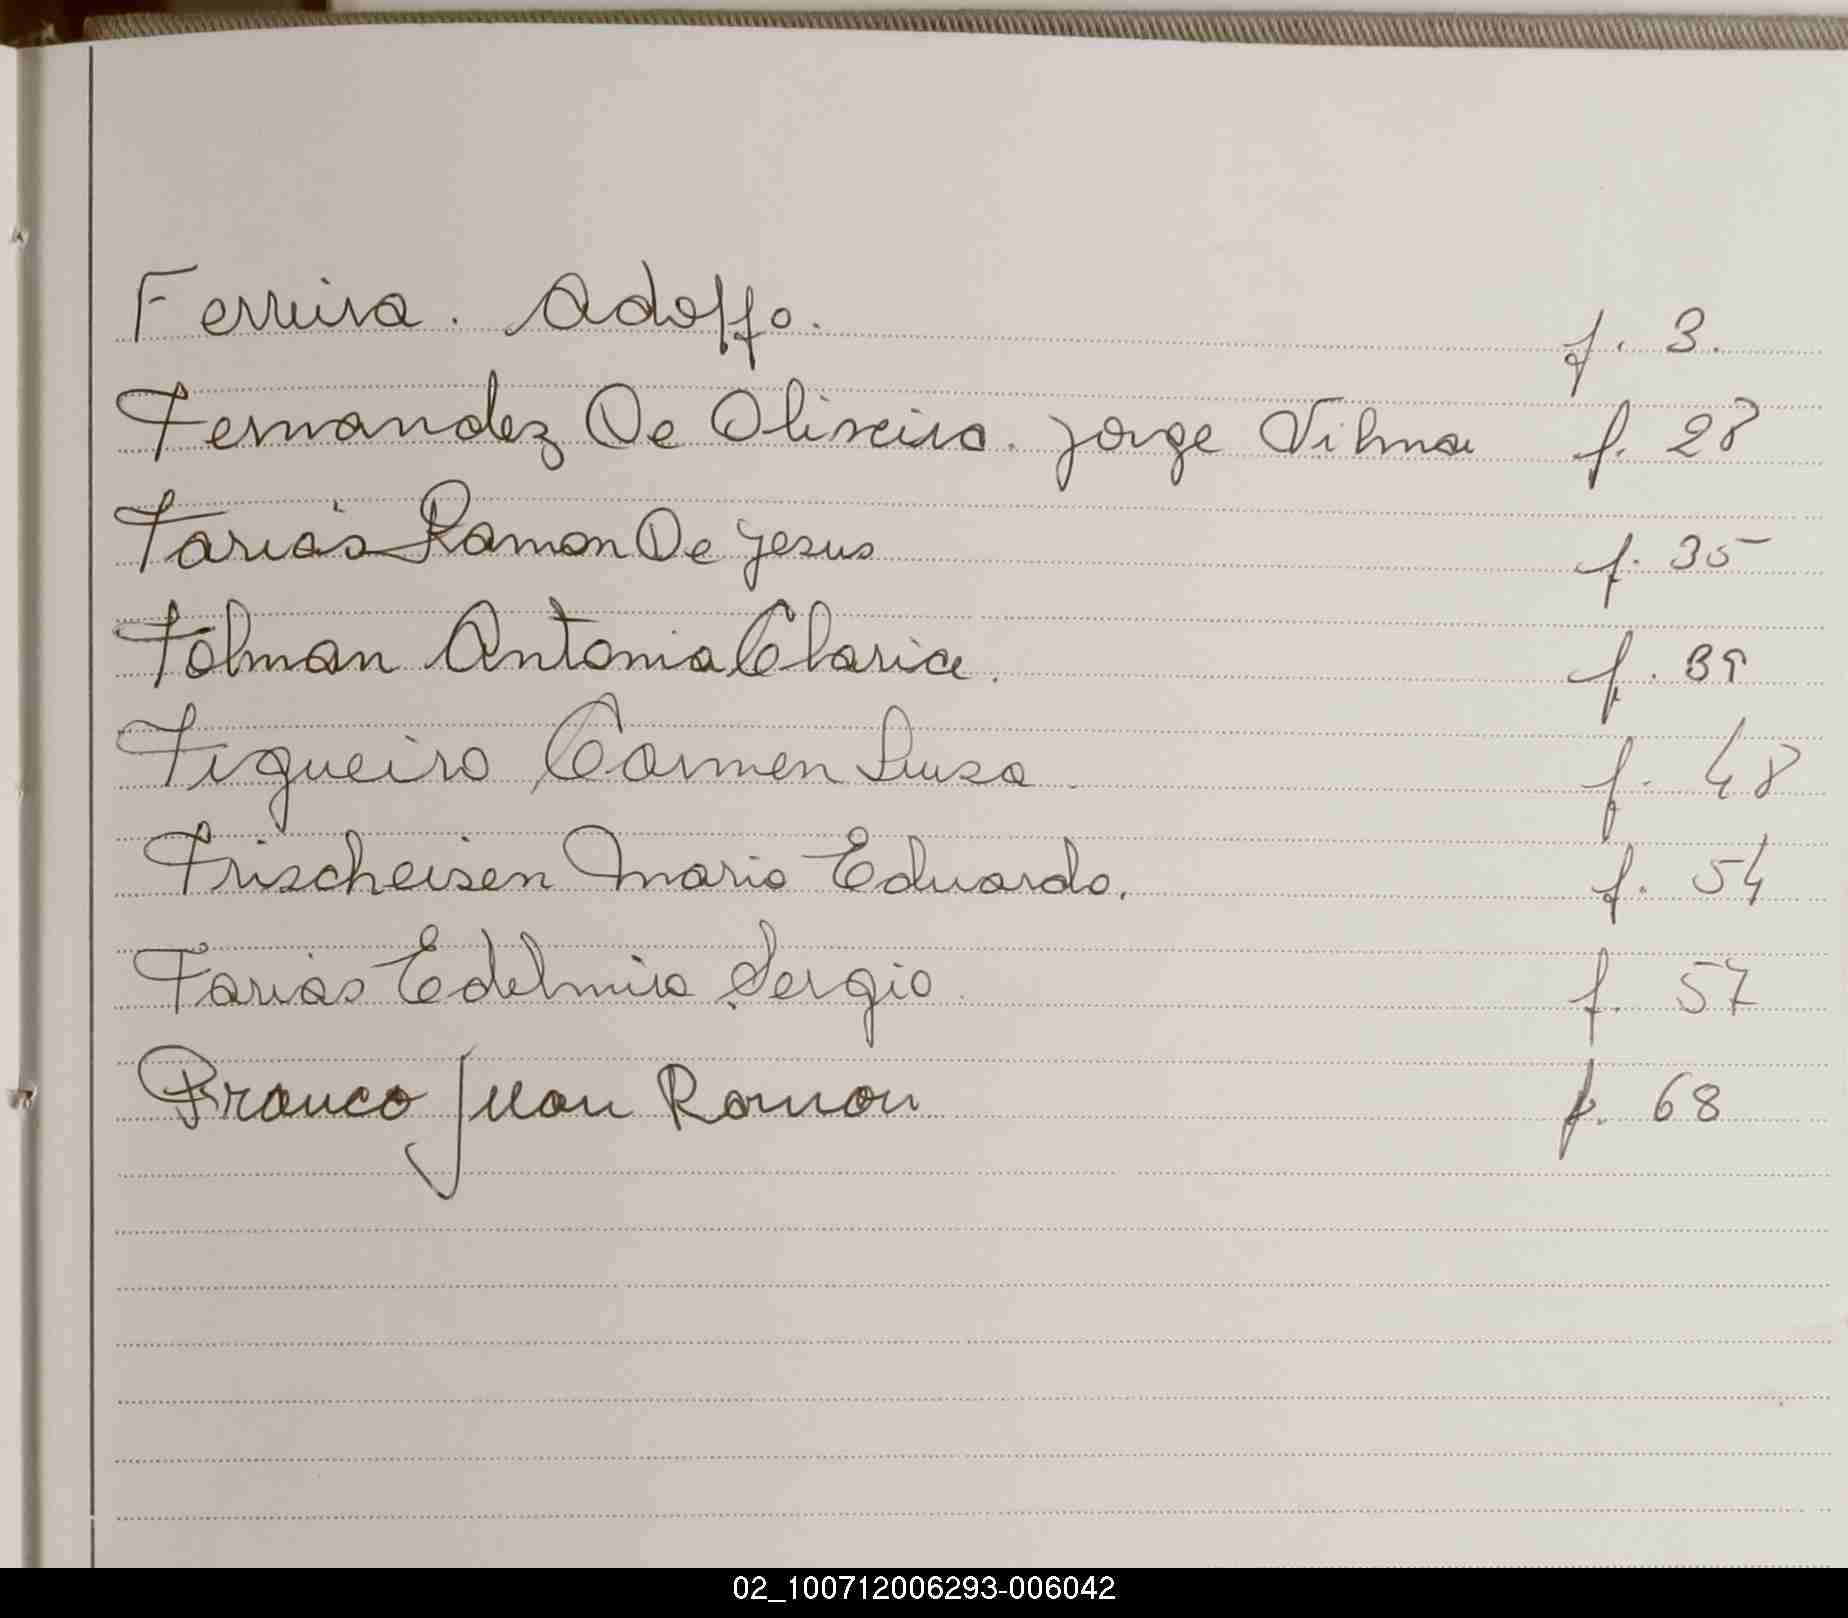 Ferreira. Adolfo. f. 3.
Fernandez De Oliveira. Jorge Vilmar f. 28
Farias Ramon De Jesus f. 35
Folman Antonia Clarice. f. 39
Figueiro Carmen Luisa. f. 48
Frischeisen Mario Eduardo. f. 54
Farias Edelmiro Sergio. f. 57
Franco Juan Ramon f. 68
02_100712006293-006042